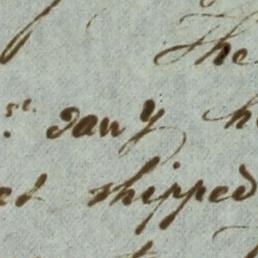 The
st Jany h
shipped